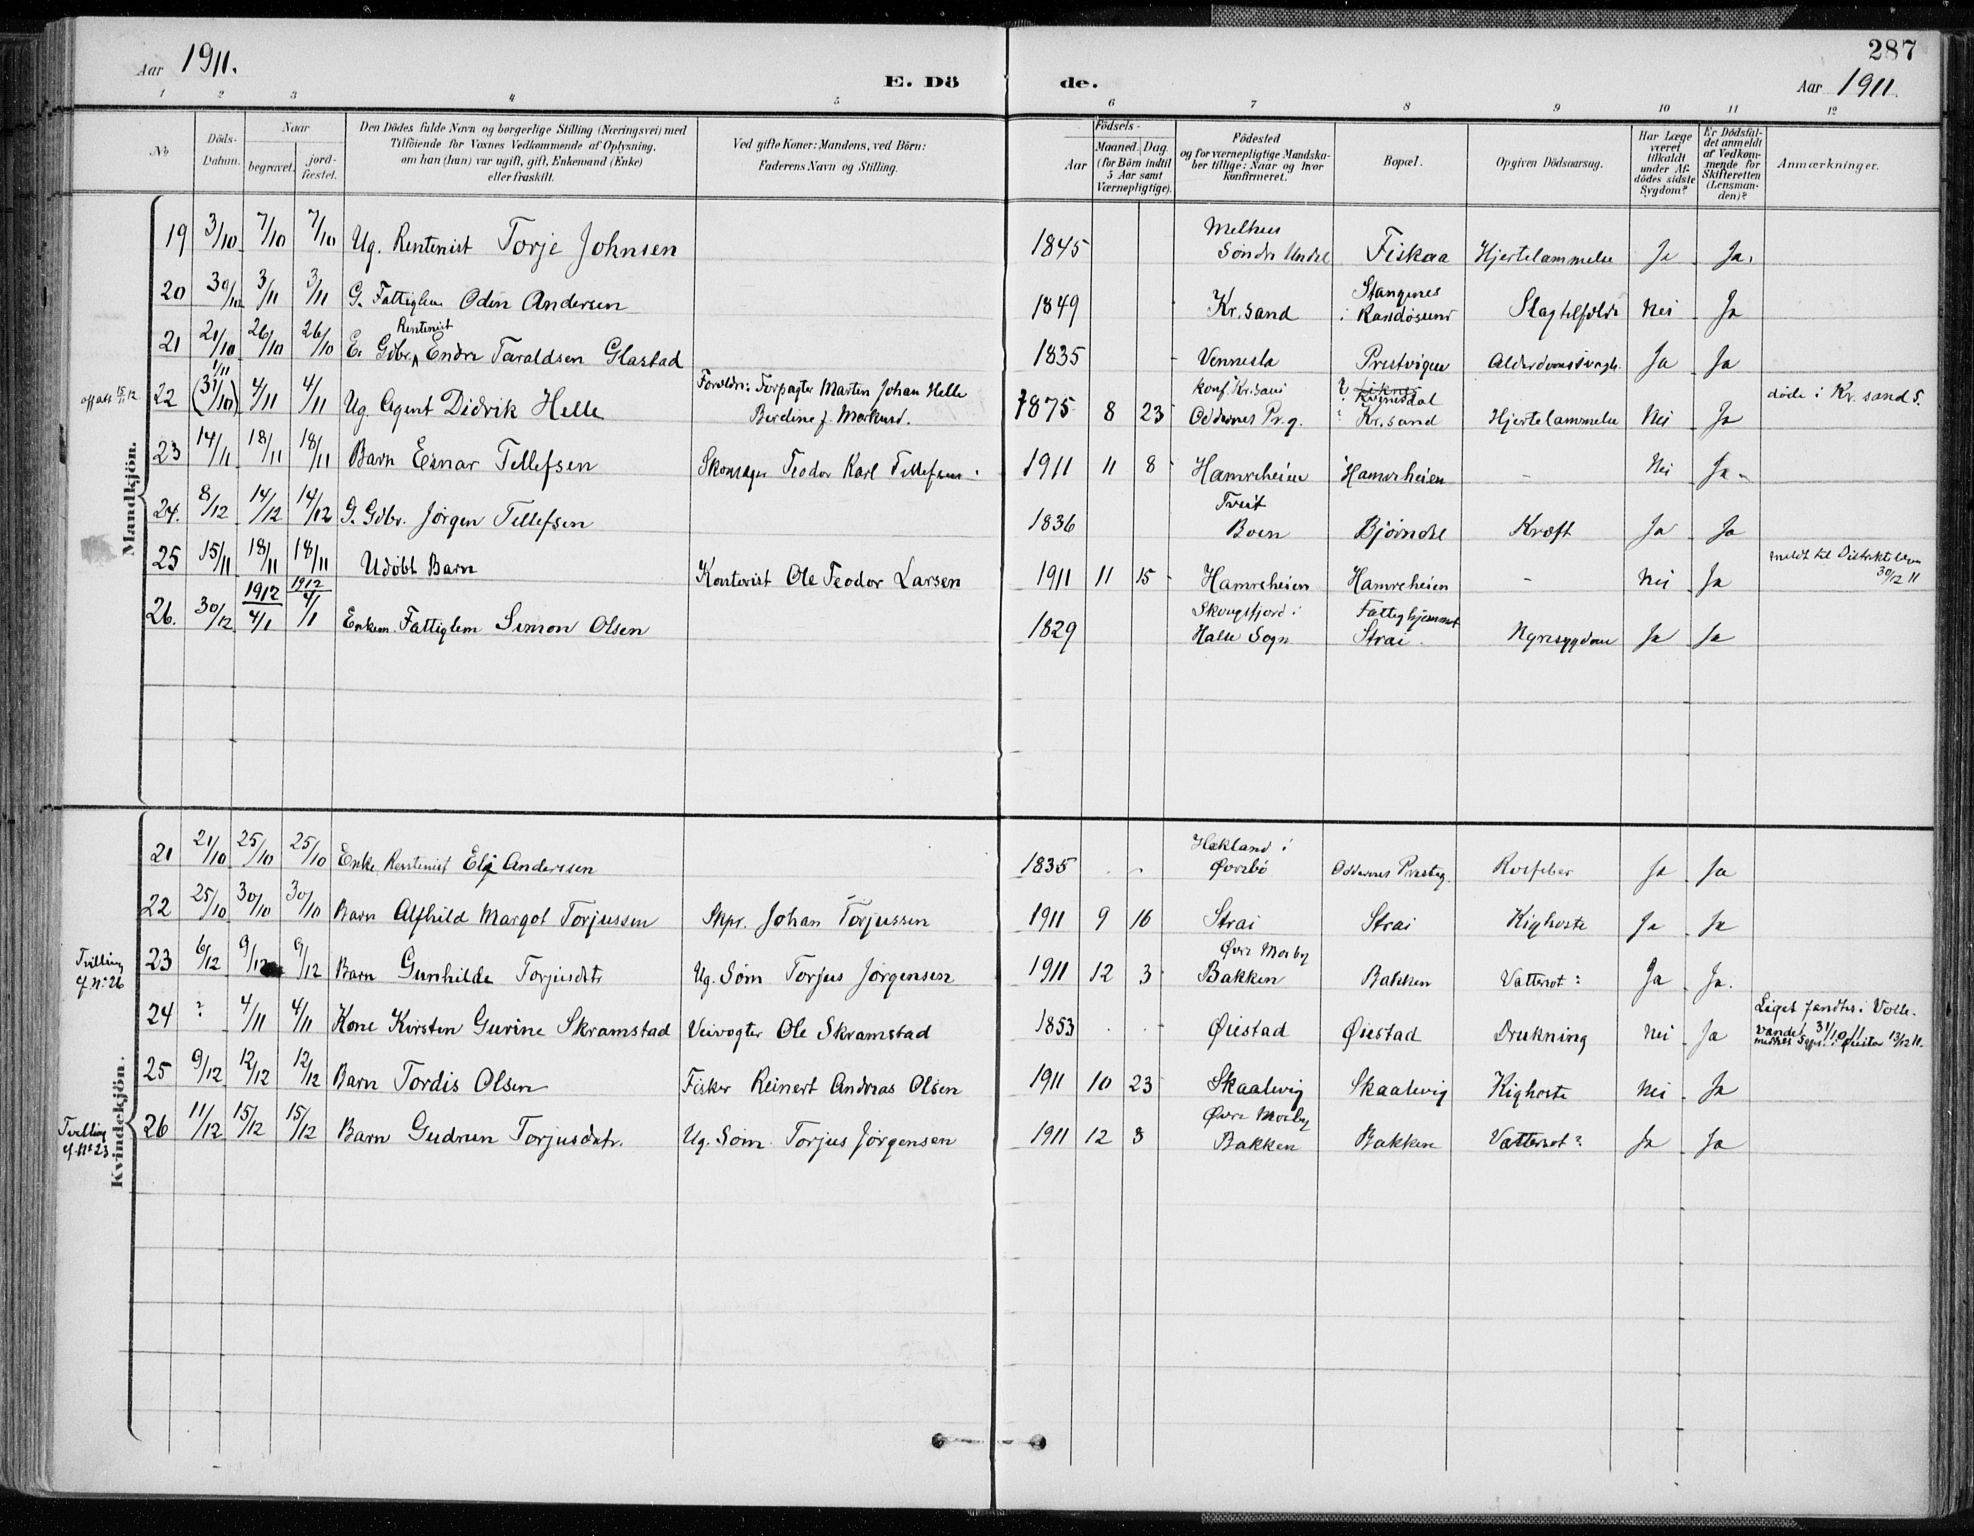 287
Aar 1911.
E. Dö de.
Aar 1911.
1 2 3 4 5 6 7 8 9 10 11 12
No
Döds-Datum.
Naar
begravet.
jord-fæstet.
Den Dödes fulde Navn og borgerlige Stilling (Næringsvei) med
Tilföiende for Voxnes Vedkommende af Oplysning,
om han (hun) var ugift, gift, Enkemand (Enke)
eller fraskilt.
Ved gifte Koner: Mandens, ved Börn:
Faderens Navn og Stilling.
Födsels-
Aar
Maaned. Dag.
(for Börn indtil
5 Aar samt
Værnepligtige).
Födested
og for værnepligtige Mandska-
ber tillige: Naar og hvor
konfirmeret.
Bopæl.
Opgiven Dödsaarsag.
Har Læge
været
tilkaldt
under Af-
dödes sidste
Sygdom?
Er Dödsfal-
det anmeldt
af Vedkom-
mende for
Skifteretten
(Lensman-
den)?
Anmærkninger.
Mandkjön.
19 3/10 7/10 7/10 Ug. Rentenist Torje Johnsen 1845 Melhus Søndre Undal Fiskaa Hjertelammelse Ja Ja.
20 30/10 3/11 3/11 G. Fattiglem Odin Andersen 1849 Kr.sand Stangenes i Randøsund Slagtilfælde Nei Ja
21 21/10 26/10 26/10 E. Gdbr. Rentenist Endre Taraldsen Glastad 1835 Vennesla Prestvigen Ja Ja
22 1/11 (31/10) 4/11 4/11 Ug. Agent Didrik Helle Forældre: Forpagter Martin Johan Helle Berdine f. Markusd. 1875 8 23 konf. Kr.sand Oddernes Pr.g. Kvinesdal ? Kr.sand Hjertelammelse Nei Ja døde i Kr.sand S.
23 14/11 18/11 18/11 Barn Einar Tellefsen Skomager Teodor Karl Tellefsen 1911 11 8 Hamreheien Hamreheien - Nei Ja
24. 8/12 14/12 14/12 G. Gdbr. Jørgen Tellefsen 1836 Tveit Boen Bjørndal Kræft Ja Ja
25 15/11 18/11 18/11 Udøbt Barn Kontorist Ole Teodor Larsen 1911 11 15 Hamreheien Hamreheien - Nei Ja meldt til Distriktslægen 30/12 11
26. 30/12 1912 4/1 1912 4/1 Enkem. Fattiglem Simon Olsen 1829 Skougsfjord i Halse Sogn Fattighjemmet Strai Nyresygdom Ja Ja
Kvindekjön.
21 21/10 25/10 25/10 Enke Rentenist Elg Andersen 1835 Hækland i Øvrebø Oddernes Presteg. Rosfeber Ja Ja
22 25/10 30/10 30/10 Barn Alfhild Margot Torjussen Skpr. Johan Torjussen 1911 9 16 Strai Strai Kighoste Ja Ja
Tvilling cf. No 26
23 6/12 9/12 9/12 Barn Gunhilde Torjusdtr Ug. Søm. Torjus Jørgensen 1911 12 3 Øvre Mosby Bakken Bakken Vattersot ? Ja Ja.
24 ? 4/11 4/11 Kone Kirsten Gurine Skramstad Veivogter Ole Skramstad 1853 Øiestad Øiestad Drukning Nei Ja Liget fandtes i Volle-vandet 31/10 11. 13/12 11.
25 9/12 12/12 12/12 Barn Tordis Olsen Fisker Reinert Andreas Olsen 1911 10 23 Skaalevig Skaalevig Kighoste Nei Ja
Tvilling cf. No 23
26 11/12 15/12 15/12 Barn Gudrun Torjusdatr. Ug. Søm. Torjus Jørgensen 1911 12 3 Øvre Mosby Bakken Bakken Vattersot ? Ja Ja